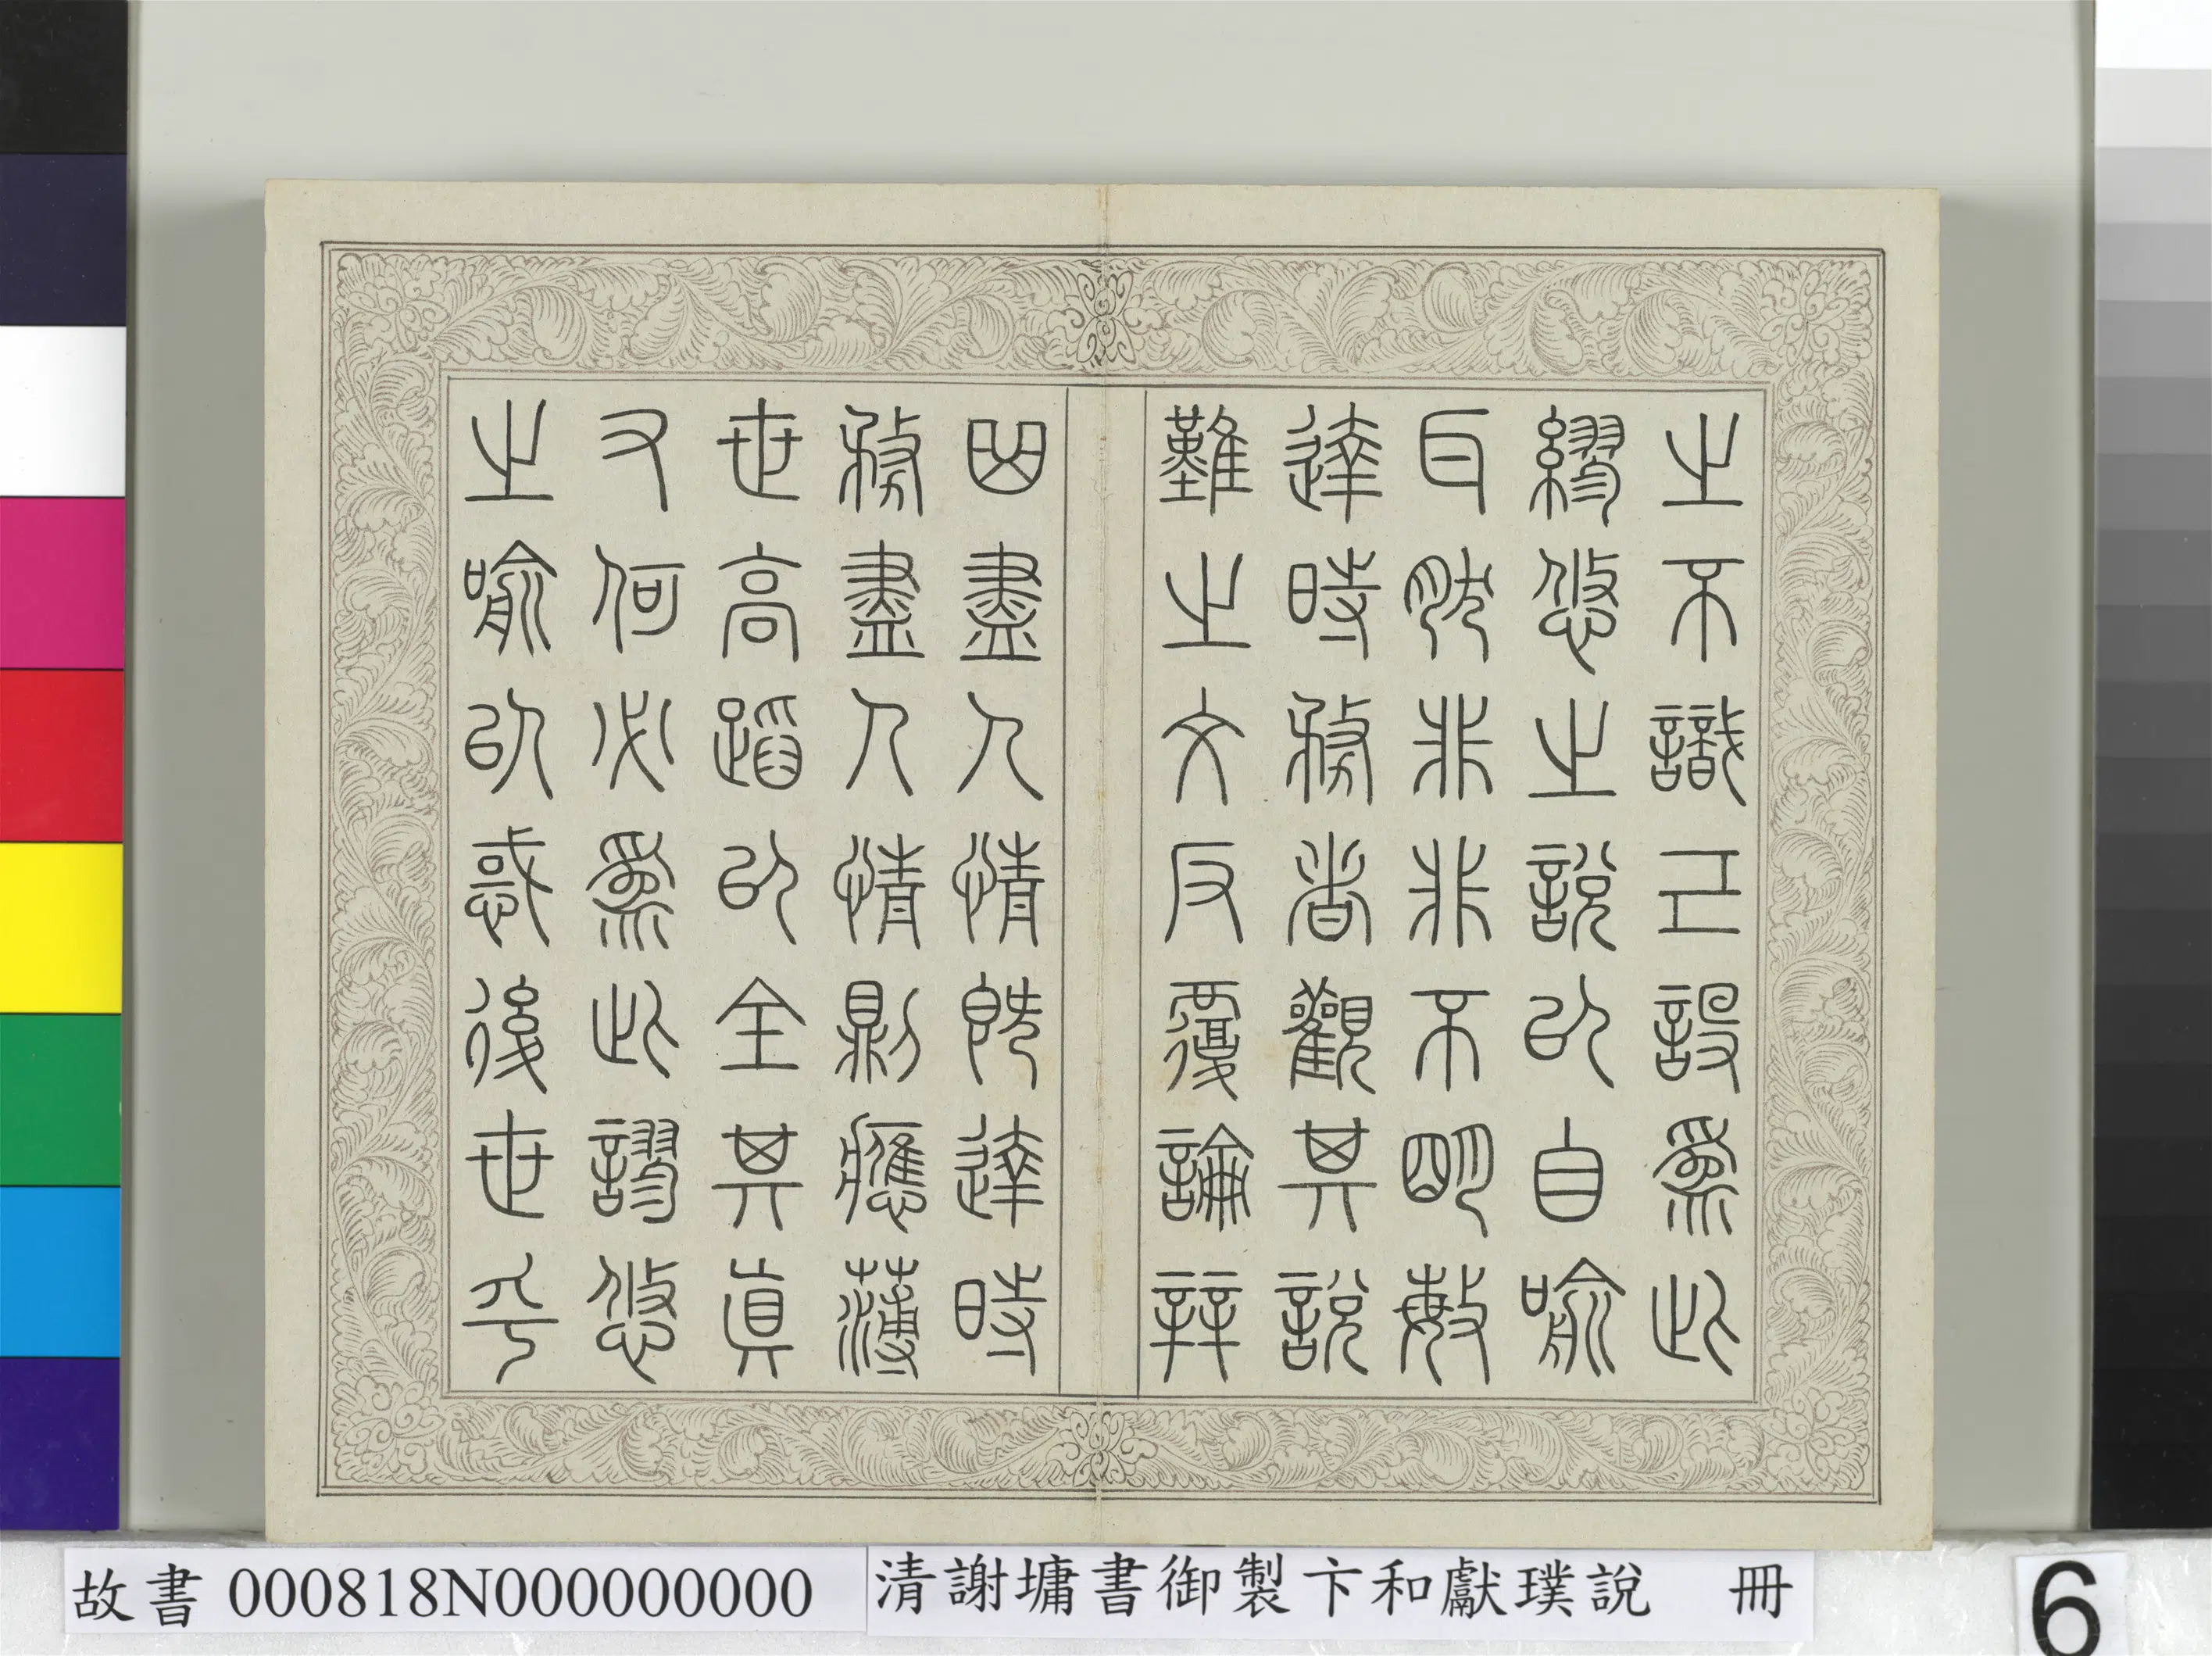 之不識工設爲此
繆悠之說以自喻
耳然非非不明敏
達時務者觀其說
難之文反覆論辡
曲盡人情既達時
務盡人情則應薄
世高蹈以全其真
又何必爲此謬悠
之喻以惑後世乎
故書 000818N000000000
清謝墉書御製卞和獻璞說 冊
6